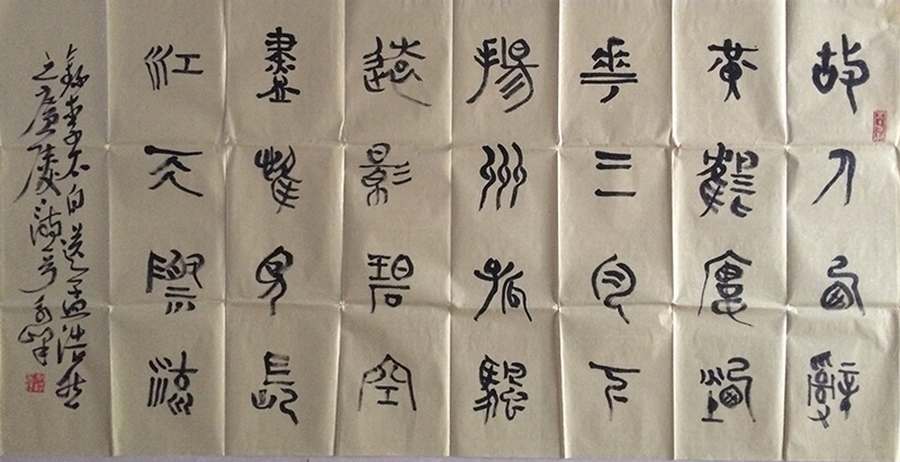 故人西辭
黃鶴樓煙
華三月下
揚州孤颿
遠影碧空
盡唯見長
江天際流
錄李太白送孟浩然
之廣陵詩